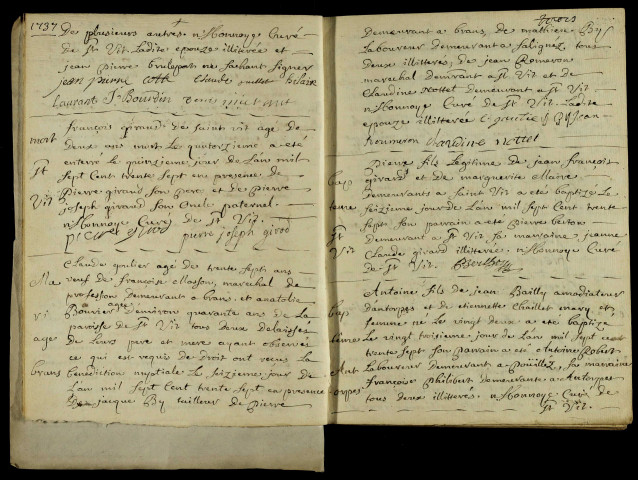 1737
De plusieurs autres. n Monnoye Curé
de St Vit. Ladite epouze illiterée et
jean pierre ne sachant signer
jean pierre Claude
Laurant St Bourdin
mort
St
Vit
françois giraud de saint vit agé de
deux ans mort Le quatorzieme a eté
enterré Le quinzieme jour de Lan mil
Sept Cent trente Sept en presence de
pierre giraud son pere et de pierre
joseph giraud son oncle paternel.
n Monnoye Curé de St Vit.
pierre joseph girod
Ma
ri
age
brans
Claude agé de trente Sept ans
veuf de françoise Masson, marechal de
profession demeurant a brans, et anatolie
Bouvier agée d'environ quarante ans de La
paroisse de St Vit tous deux delaissés
de Leurs pere et mere ayant observés
ce qui est requis de droit ont reçus La
benediction nuptiale Le seizieme jour de
Lan mil Sept Cent trente Sept en presence
de jacque By tailleur de pierre
trois
demeurant a brans, de mathieu By
Laboureur demeurant a Saligney tous
deux illiterés, de jean Romoron
marechal demeurant a St Vit et de
Claudine Nottet demeurant a St Vit
n Monnoye Curé de St Vit. Ladite
epouze illiterée By jean
Roumoron claudine nottet
bap
teme
St
Vit
Pierre fils Legitime de jean françois
girard et de marguerite Maire
demeurants a Saint Vit a eté baptizé Le
seizieme jour de Lan mil Sept Cent trente
Sept son parrain a eté pierre berton
demeurant a St Vit sa marraine jeanne
Claude girard illiterée. n Monnoye Curé
de St Vit.
bap
teme
Ant
orpes
Antoine fils de jean Bailly amodiateur
dantorpes et de etiennette Chaillet mary et
femme né Le vingt deux a eté baptizé
Le vingt troizieme jour de Lan mil Sept cent
trente Sept son parrain a eté Antoine Robert
Laboureur demeurant a pouilley, sa marraine
françoise philibert demeurante a Antorpes
tous deux illiterés. n Monnoye Curé de
St Vit.